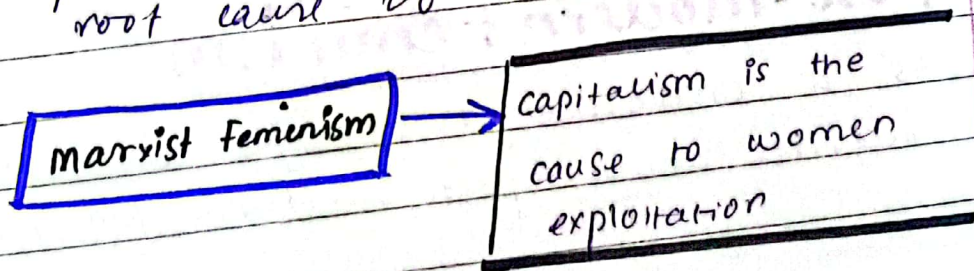 root cause
marxist feminism
capitalism is the
cause to women
exploitation